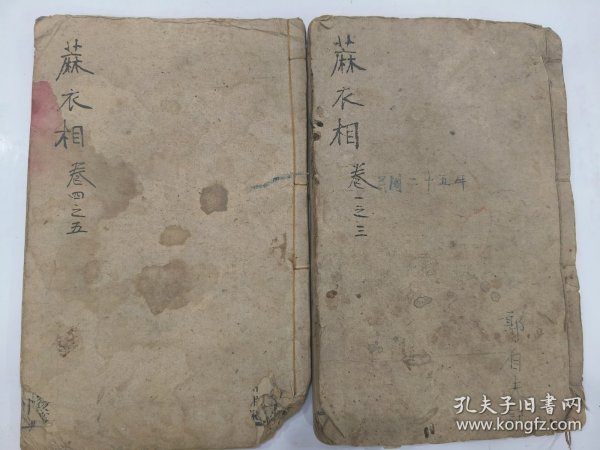 蔴衣相卷四之五
蔴衣相卷一之三
民國二十五年
孔夫子旧書网
www.kongfz.com